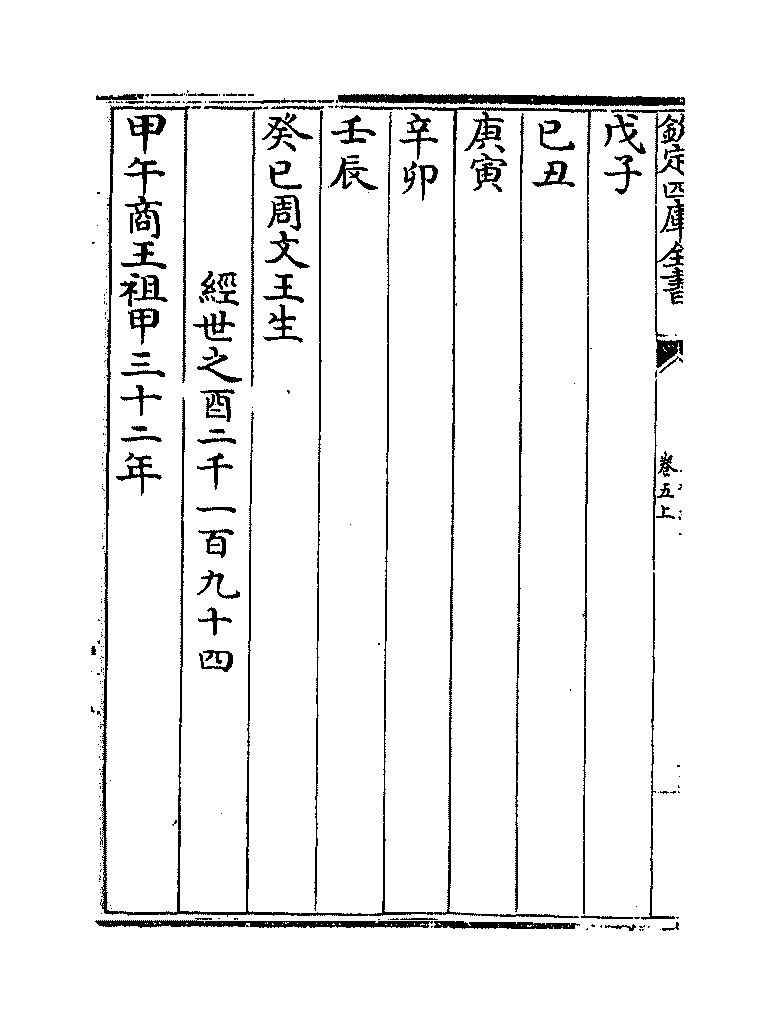 欽定四庫全書
卷五上
戊子
已丑
庚寅
辛卯
壬辰
癸巳周文王生
經世之酉二千一百九十四
甲午商王祖甲三十二年